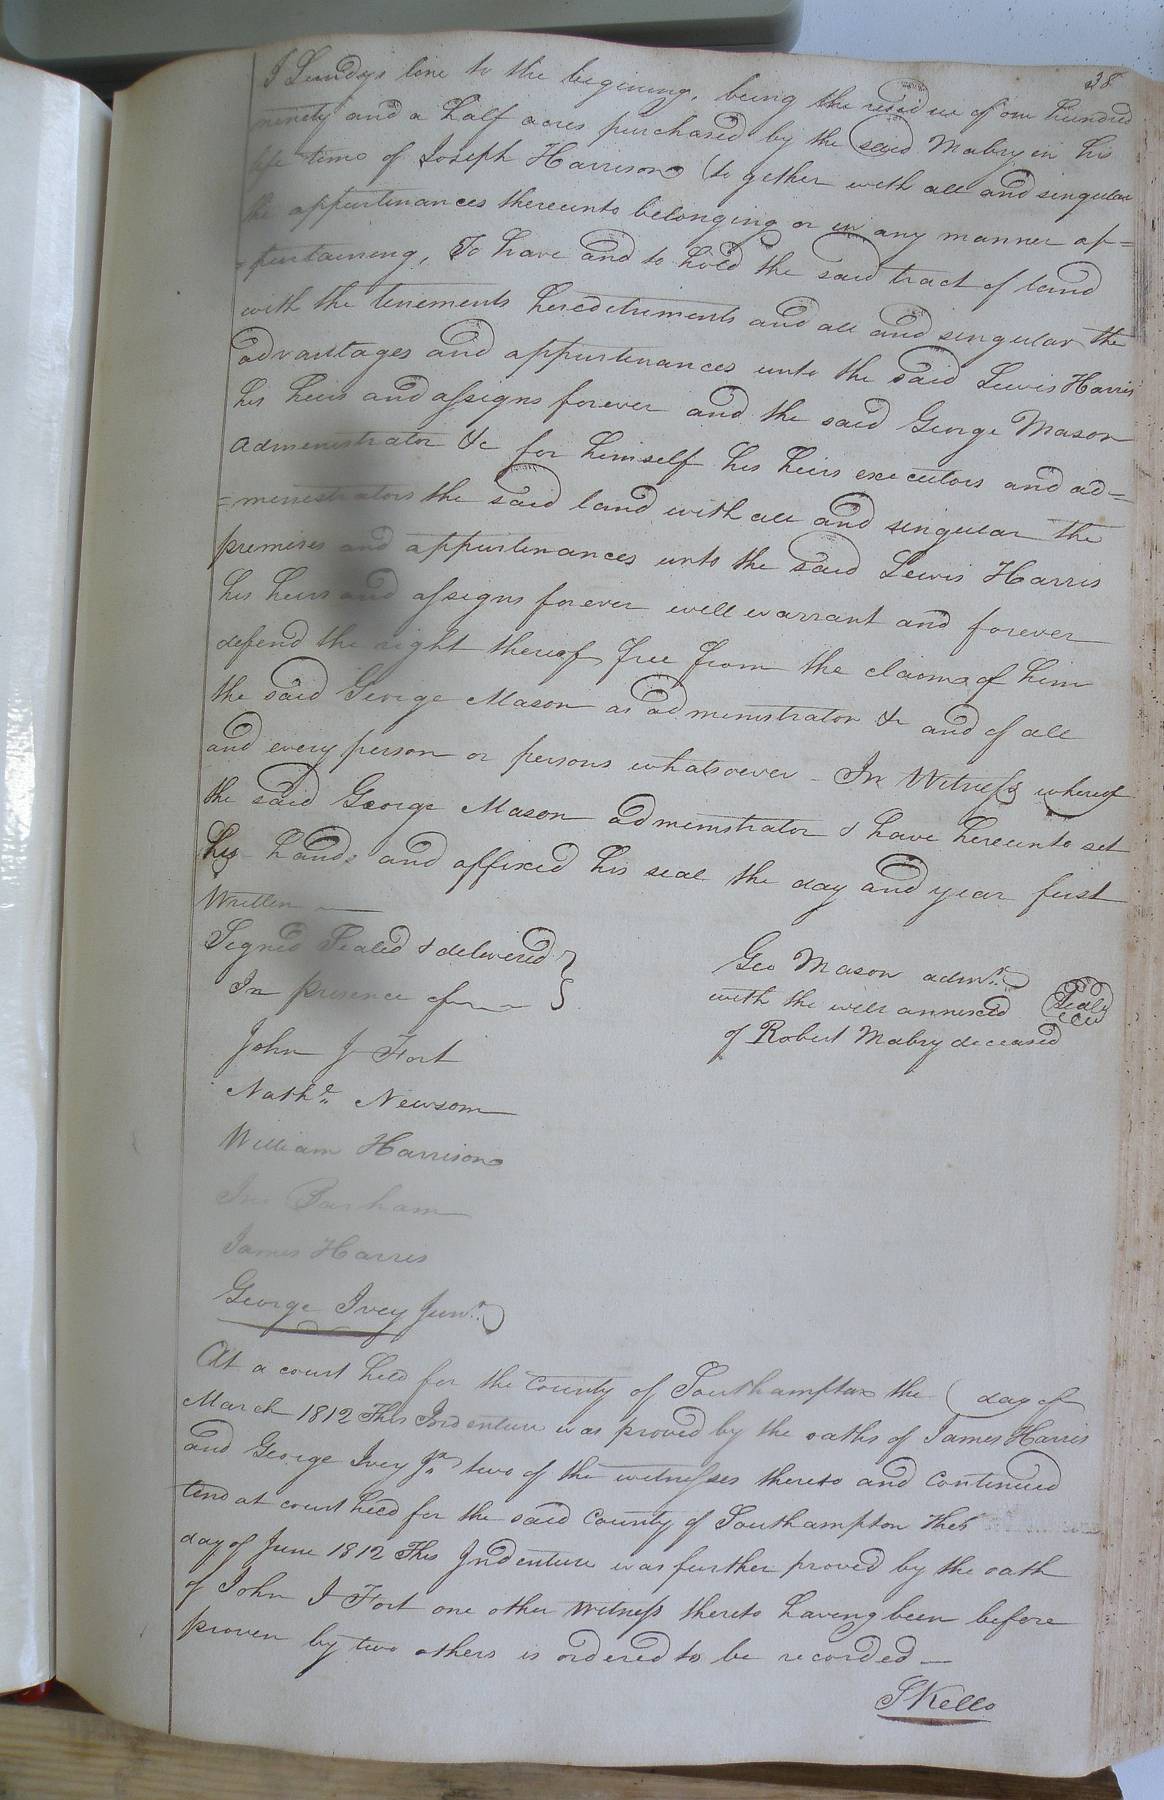 38
J Lundys line to the begining, being the residue of one hundred
ninety and a half acres purchased by the said Mabry in his
life time of Joseph Harrison (together with all and singular
the appurtinances thereunto belonging or in any manner ap=
=purtaining, To have and to hold the said tract of land
with the tenements hereditiments and all and singular the
advantages and appurtinances unto the said Lewis Harris
his heirs and assigns forever and the said George Mason
administrator &c for himself his heirs executors and ad=
=ministrators the said land with all and singular the
premises and appurtinances unto the said Lewis Harris
his heirs and assigns forever will warrant and forever
defend the right thereof, free from the claims of him
the said George Mason as administrator &c and of all
and every person or persons whatsoever - In Witness whereof
the said George Mason administrator & have hereunto set
his hands and affixed his seal the day and year first
Written
Signed Sealed & delivered }
In presence of }
Geo Mason admr.
with the will annexed Seal
of Robert Mabry deceased
John J Fort
Nathl. Newsom
William Harrison
Jno Barham
James Harris
George Ivey Junr.
At a court held for the County of Southampton the day of
March 1812 This Indenture was proved by the oaths of James Harris
and George Ivey Jr two of the witnesses thereto and Continued
And at court held for the said County of Southampton the
day of June 1812 This Indenture was further proved by the oath
of John J Fort one other Witness thereto having been before
proven by two others is ordered to be recorded
S Kello